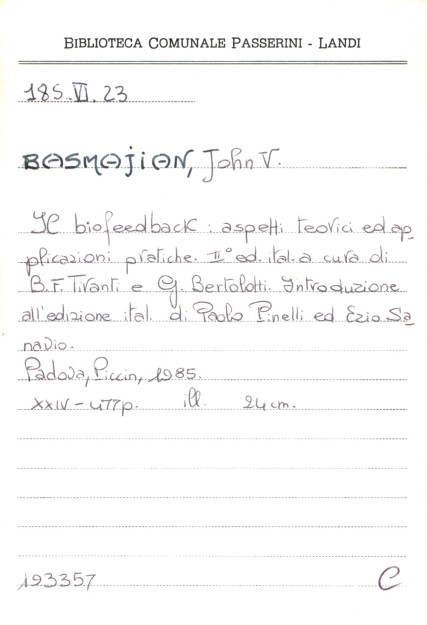 BIBLIOTECA COMUNALE PASSERINI - LANDI
185.VI.23
BASMAJIAN, John V.
Il biofeedback : aspetti teorici ed ap
plicazioni pratiche. II° ed. ital. a cura di
B.F. Tiranti e G. Bertolotti. Introduzione
all'edizione ital. di Paolo Pinelli ed Ezio Sa
navio.
Padova, Piccin, 1985.
XXIV - 477p. ill. 24 cm.
193357 C